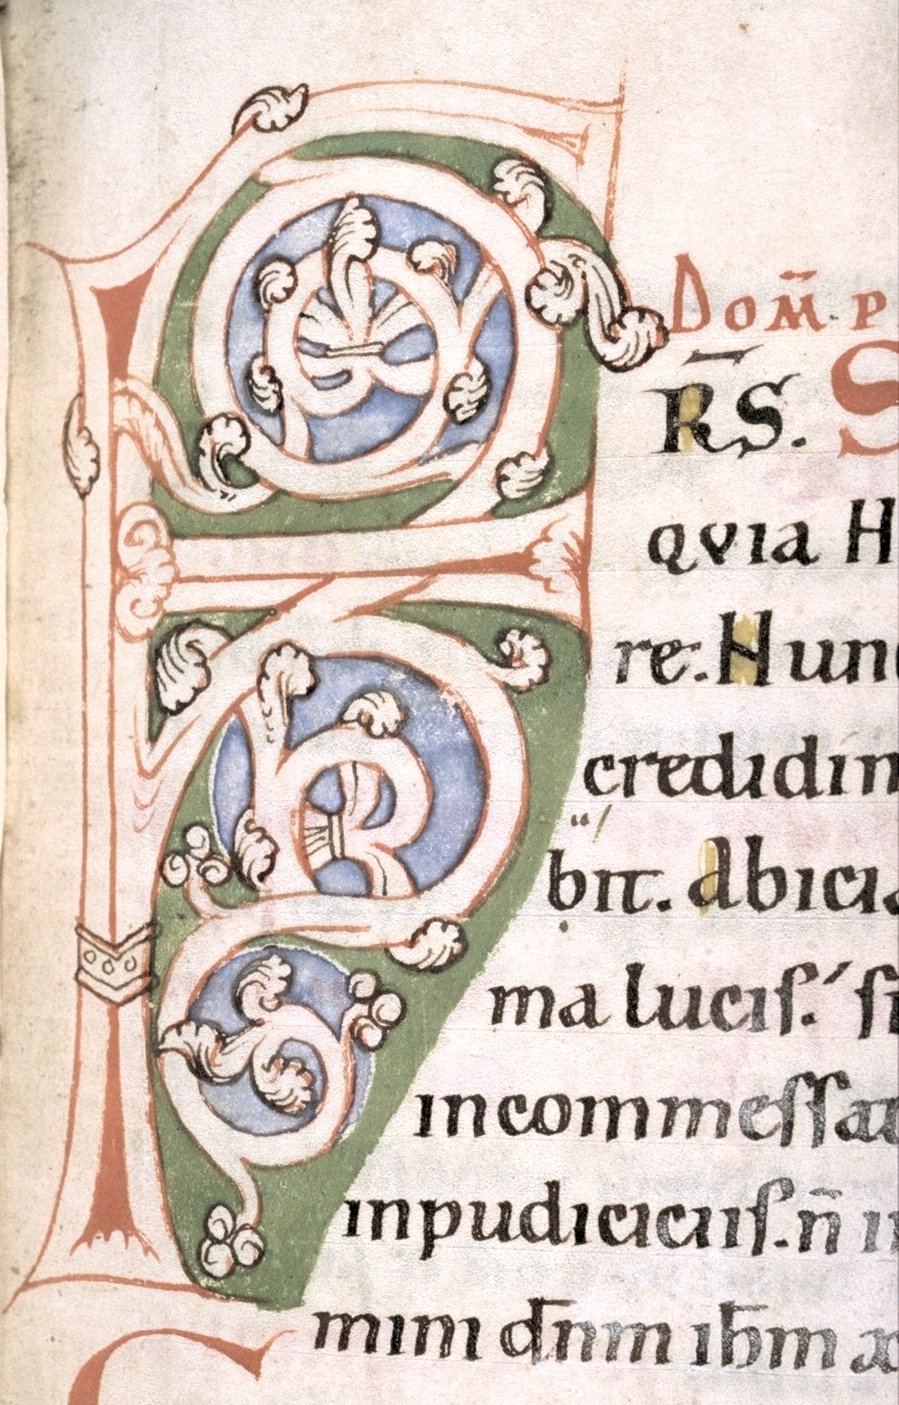 F
Dom̄. P
R̄S. S
qvia H
re. Hun
credidim
bit. abicia
ma lucis. si
incommessat
inpudiciciis. n̄ i
mini dn̄m ih̄m x